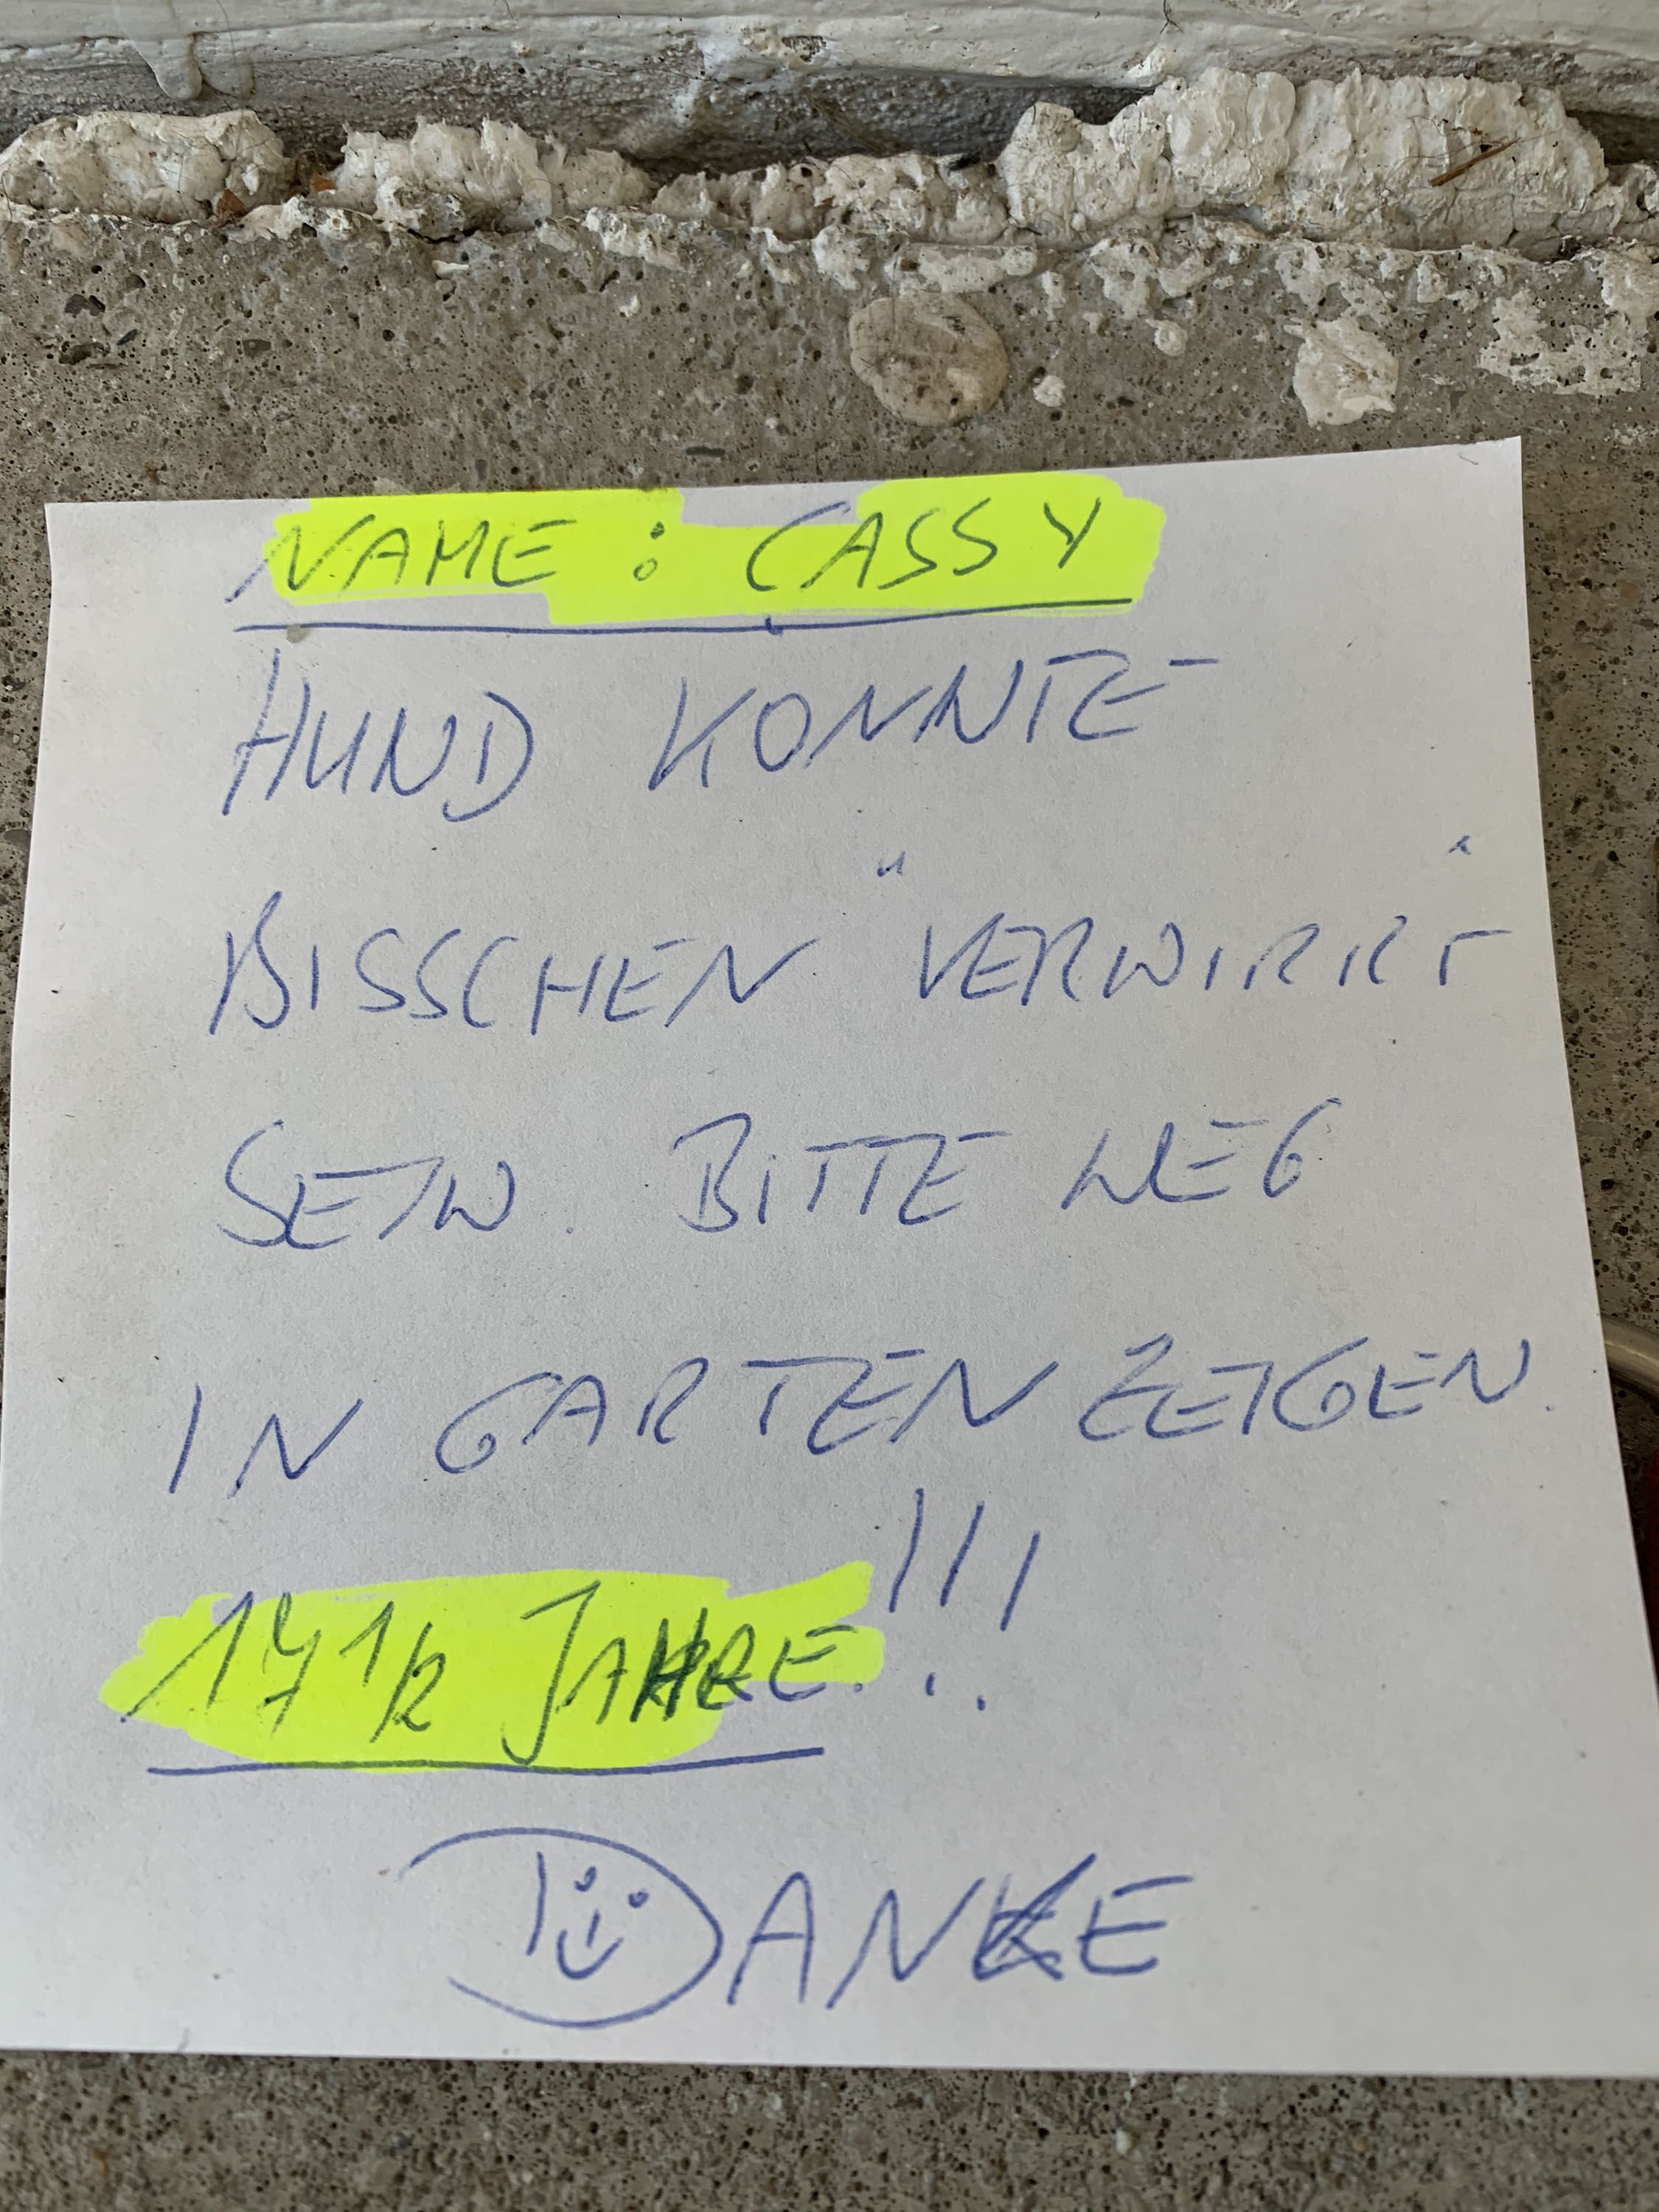 NAME: CASSY
HUND KONNTE
BISSCHEN "VERWIRRT"
SEIN. BITTE WEG
IN GARTEN ZEIGEN.
17 1/2 JAHRE!!!
DANKE